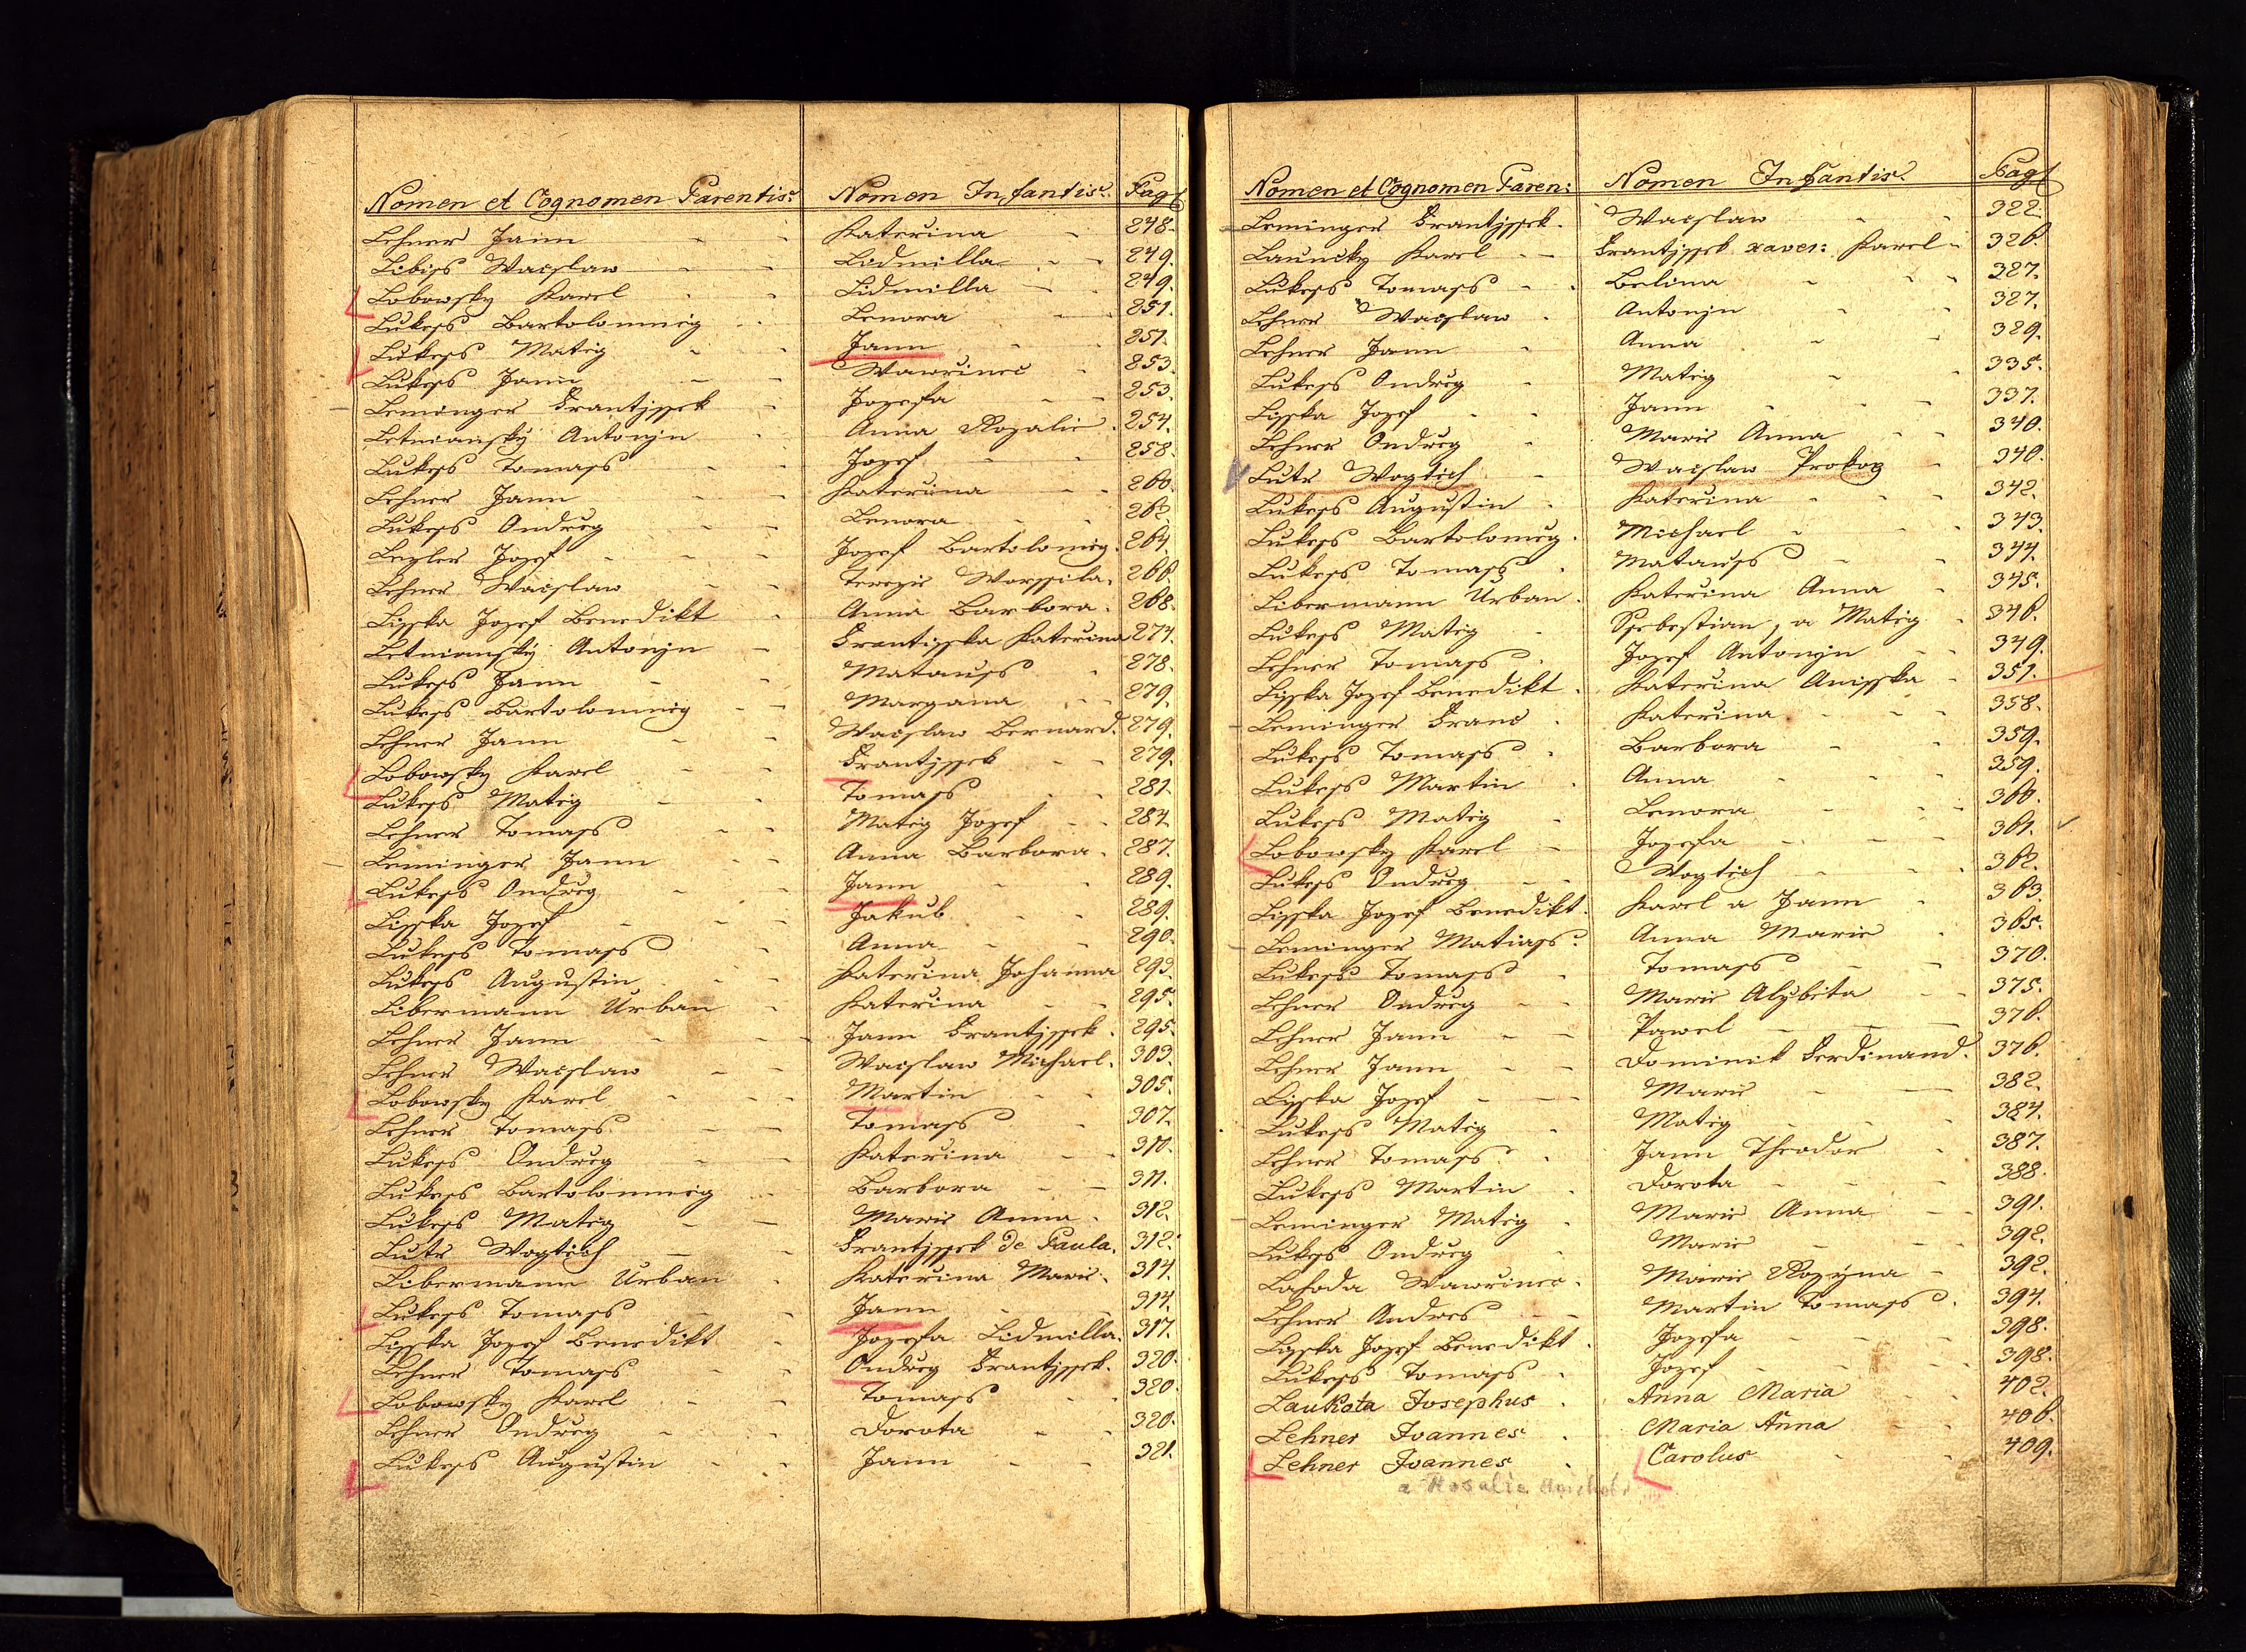 Nomen et Cognomen Parentis. Nomen Infantis. Pag
Lehner Jann - - Katerina - 248.
Libiss Waczlaw - - Lidmilla - - 249.
Lobowsky Karel - - Lidmilla - - 249.
Lukess Bartolomneg - - Lenora - - 251.
Lukess Mateg - - Jann - - 251.
Lukess Jann - - Wawrinec - 253.
Leminger Frantissek - Jozefa - - 253.
Letnianský Antonjn - Anna Rozalie . 254.
Lukess Tomass - - Jozef - - 258.
Lehner Jann - - Katerina - - 260.
Lukess Ondreg - - Lenora - - 262.
Lezler Jozef - - - Jozef Bartolomeg. 264.
Lehner Waczlaw - - Terezie Worssila. 266.
Lisska Jozef Benedikt - Anna Barbora. 268.
Letnianský Antonjn - Frantisska Katerina 274.
Lukess Jann - - Matauss - 278.
Lukess Bartolomneg - - Marzana - - 279.
Lehner Jann - - Waczlaw Bernard. 279.
Lobowsky Karel - - Frantissek - - 279.
Lukess Mateg - - Tomass - - 281.
Lehner Tomass - - Mateg Jozef - - 284.
Leminger Jann - - Anna Barbora. 287.
Lukess Ondreg - - Jann - - 289.
Lisska Jozef - - - Jakub - - 289.
Lukess Tomass - Anna - - 290.
Lukess Augustin - - Katerina Johanna 293.
Libermann Urban - Katerina - - 295.
Lehner Jann - - - Jann Frantissek. 295.
Lehner Waczlaw - - Waczlaw Michael. 303.
Lobowsky Karel - - - Martin - - 305.
Lehner Tomass - - Tomass - 307.
Lukess Ondreg - - Katerina - - 310.
Lukess Bartolomneg - Barbora - - 311.
Lukess Mateg - - Marie Anna . 312.
Lutr Wogtěch - - Frantissek De Paula. 312.
Libermann Urban - Katerina Marie. 314.
Lukess Tomass - - Jann - - 314.
Lisska Jozef Benedikt - Jozefa Lidmilla. 317.
Lehner Tomass - - Ondreg Frantissek. 320.
Lobowsky Karel - - - Tomass - - 320.
Lehner Ondreg - - - Dorota - - 320.
Lukess Augustin - - Jann - - 321.
Nomen et Cognomen Paren: Nomen Infantis. Pag
Leminger Frantissek. Waczlaw - - 322.
Launcky Karel - - Frantissek xaver: Karel - 326.
Lukess Tomass - . Belina - - - 327.
Lehner Waczlaw . Antonjn - - 327.
Lehner Jann - Anna - - 329.
Lukess Ondreg - Mateg - - 335.
Lisska Jozef - - Jann - - - 337.
Lehner Ondreg - Marie Anna - - 340.
Lutr Wogtěch - Waczlaw Prokop - 340.
Lukess Augustin . Katerina - - - 342.
Lukess Bartolomeg. Michael - - - 343.
Lukess Tomass . Matauss - - 344.
Libermann Urban. Katerina Anna - 345.
Lukess Mateg - Ssebestian, a Mateg - 346.
Lehner Tomass . Jozef Antonjn - - 349.
Lisska Jozef Benedikt . Katerina Anisska - 351.
Leminger Franc . Katerina - - - 358.
Lukess Tomass . Barbora - - 359.
Lukess Martin . Anna - - - 359.
Lukess Mateg - Lenora - - - 360.
Lobowsky Karel - Jozefa - - - 361.
Lukess Ondreg - - Wogtěch - - - 362.
Lisska Jozef Benedikt. Karel a Jann . 363.
Leminger Matiass. Anna Marie . 365.
Lukess Tomass - Tomass - - 370.
Lehner Ondreg - - Marie Alzbeta - - 375.
Lehner Jann - - Pawel - - - 376.
Lehner Jann - - Dominik Ferdinand. 376.
Lisska Jozef - - - Marie - - 382.
Lukess Mateg - Mateg - - - 384.
Lehner Tomass . Jann Theodor - 387.
Lukess Martin . Dorota - - - 388.
Leminger Mateg . Marie Anna - - 391.
Lukess Ondreg - Marie - - - 392.
Lahoda Wawrinec. Marie Rozyna - 392.
Lehner Andres - - Martin Tomass . 394.
Lisska Jozef Benedikt . Jozefa - - - 398.
Lukess Tomass - Jozef - - - 398.
Laukota Josephus . Anna Maria - - 402.
Lehner Joannes . Maria Anna - - 406.
Lehner Joannes . Carolus - - 409.
a Rosalie